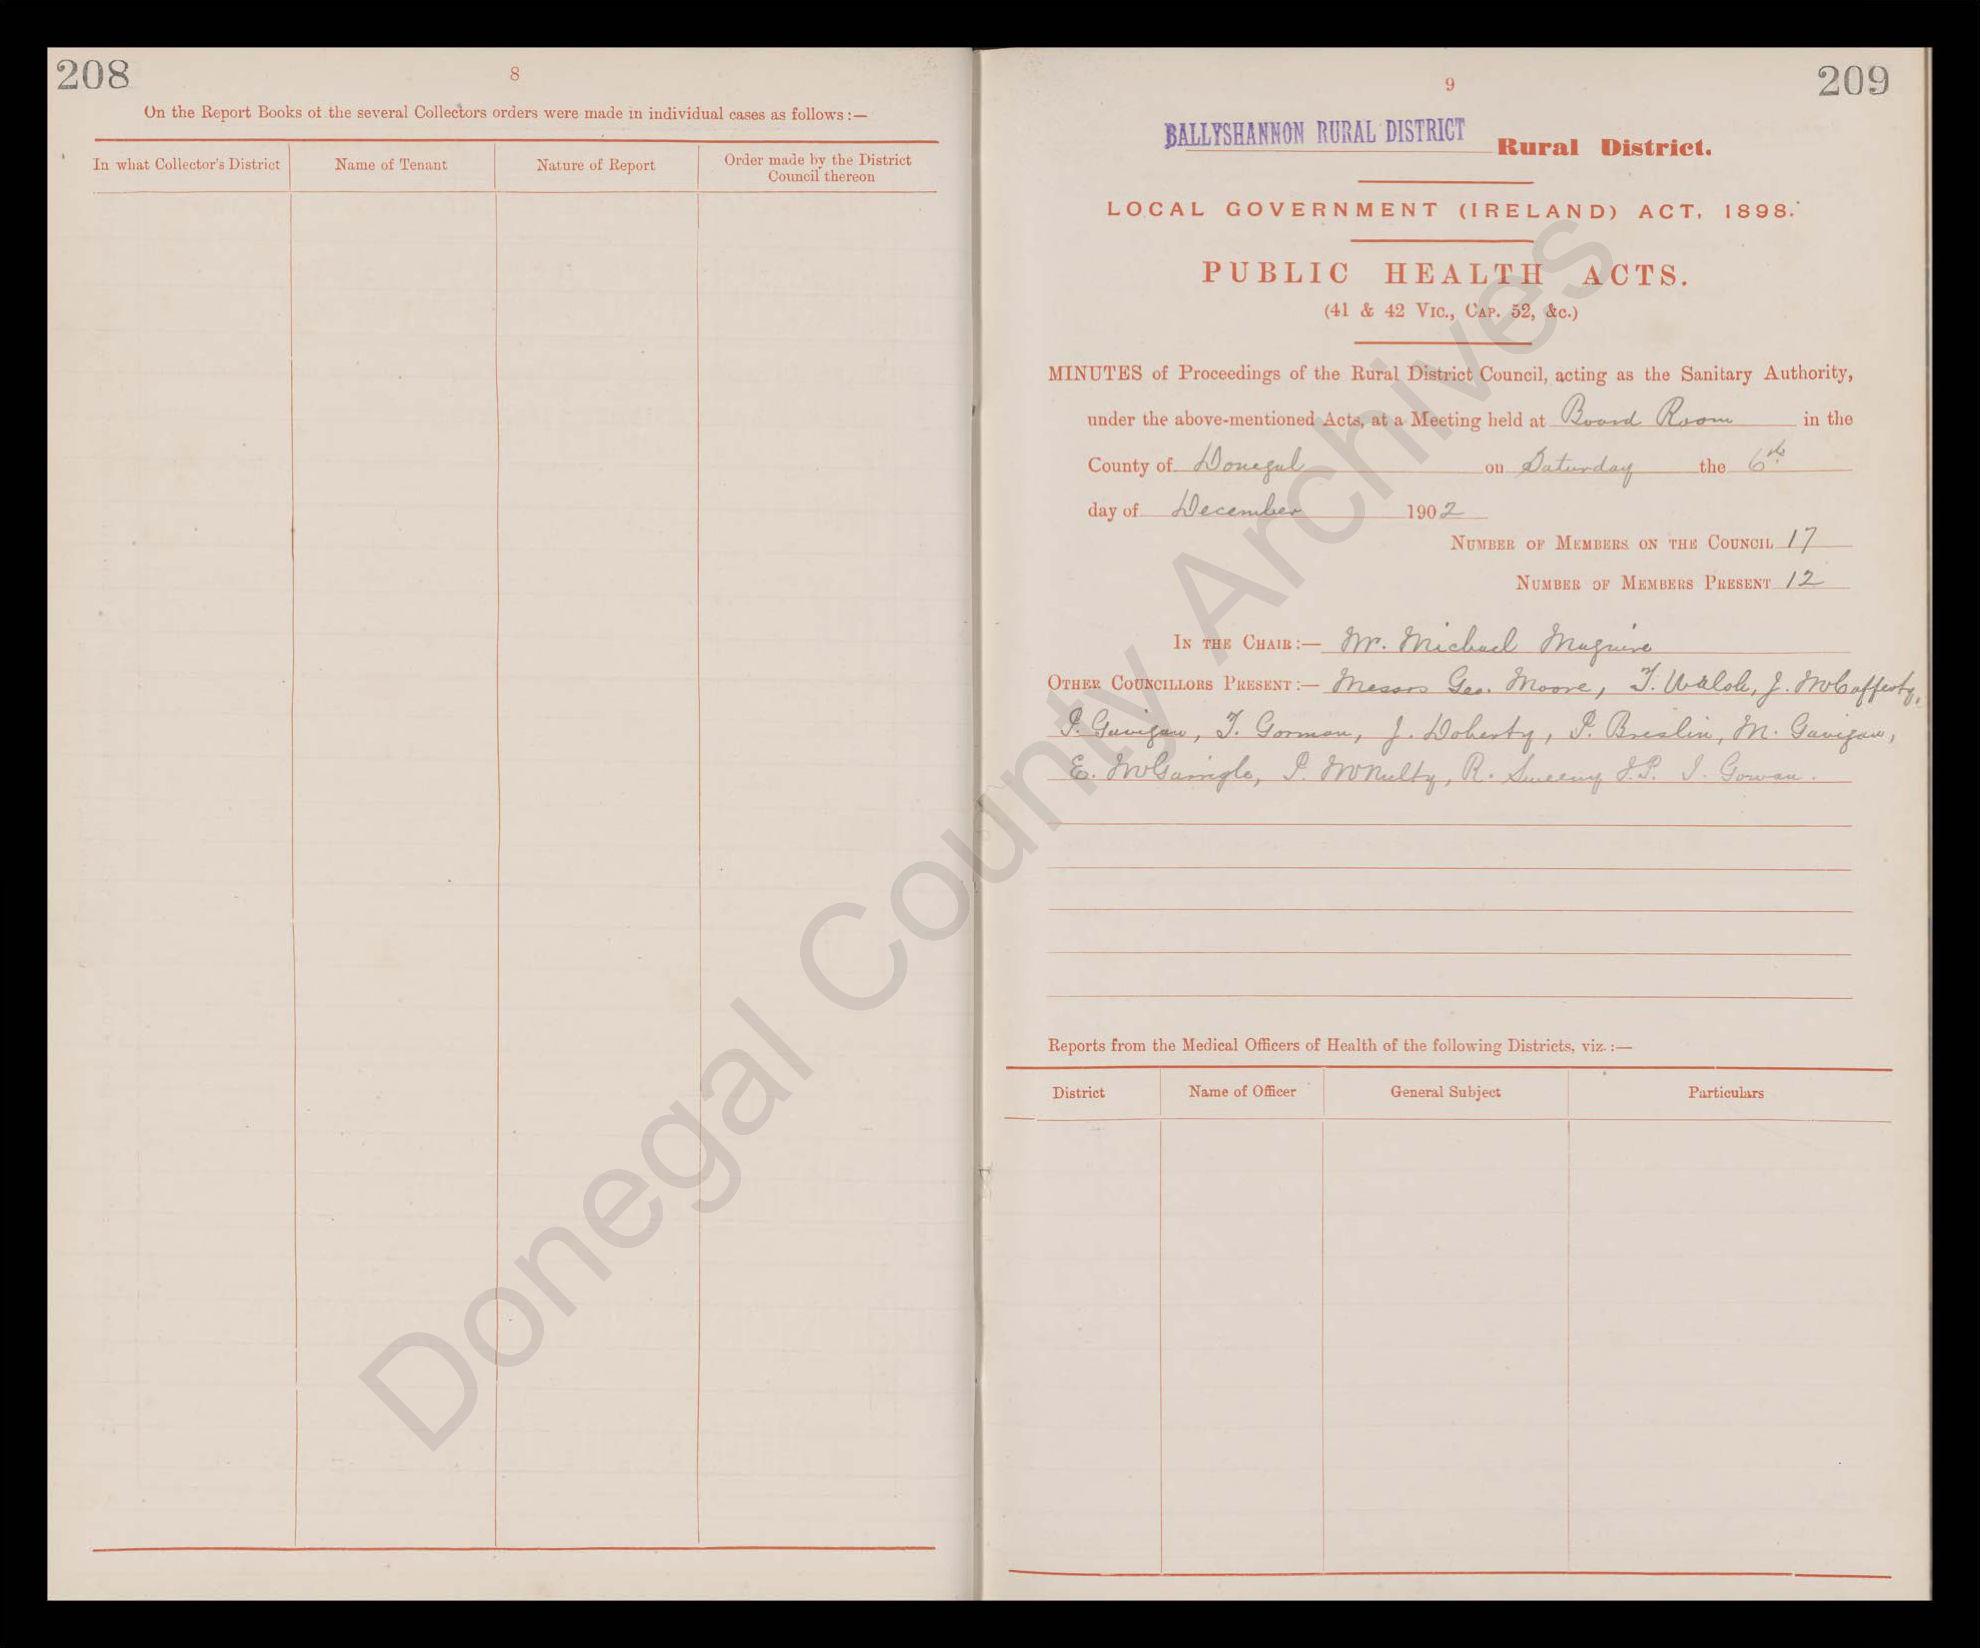 208
8
On the Report Books of the several Collectors orders were made in individual cases as follows :—
In what Collector's District
Name of Tenant
Nature of Report
Order made by the District
Council thereon
209
9
BALLYSHANNON RURAL DISTRICT Rural District.
LOCAL GOVERNMENT (IRELAND) ACT, 1898.
PUBLIC HEALTH ACTS.
(41 & 42 Vic., Cap. 52, &c.)
MINUTES of Proceedings of the Rural District Council, acting as the Sanitary Authority,
under the above-mentioned Acts, at a Meeting held at Board Room in the
County of Donegal on Saturday the 6th
day of December 1902
Number of Members on the Council 17
Number of Members Present 12
In the Chair :— Mr. Michael Maguire
Other Councillors Present :— Messrs Geo. Moore, T. Walsh, J. McCafferty,
P. Gavigan, T. Gorman, J. Doherty, P. Breslin, M. Gavigan,
E. McGarrigle, P. McNulty, R. Sweeny J.P. Gowan.
Reports from the Medical Officers of Health of the following Districts, viz. :—
District
Name of Officer
General Subject
Particulars
Donegal County Archives